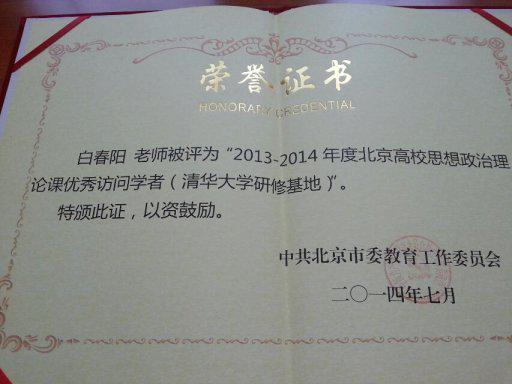 荣誉证书
HONORARY CREDENTIAL
白春阳 老师被评为“2013-2014年度北京高校思想政治理
论课优秀访问学者(清华大学研修基地)”。
特颁此证,以资鼓励。
中共北京市委教育工作委员会
二〇一四年七月